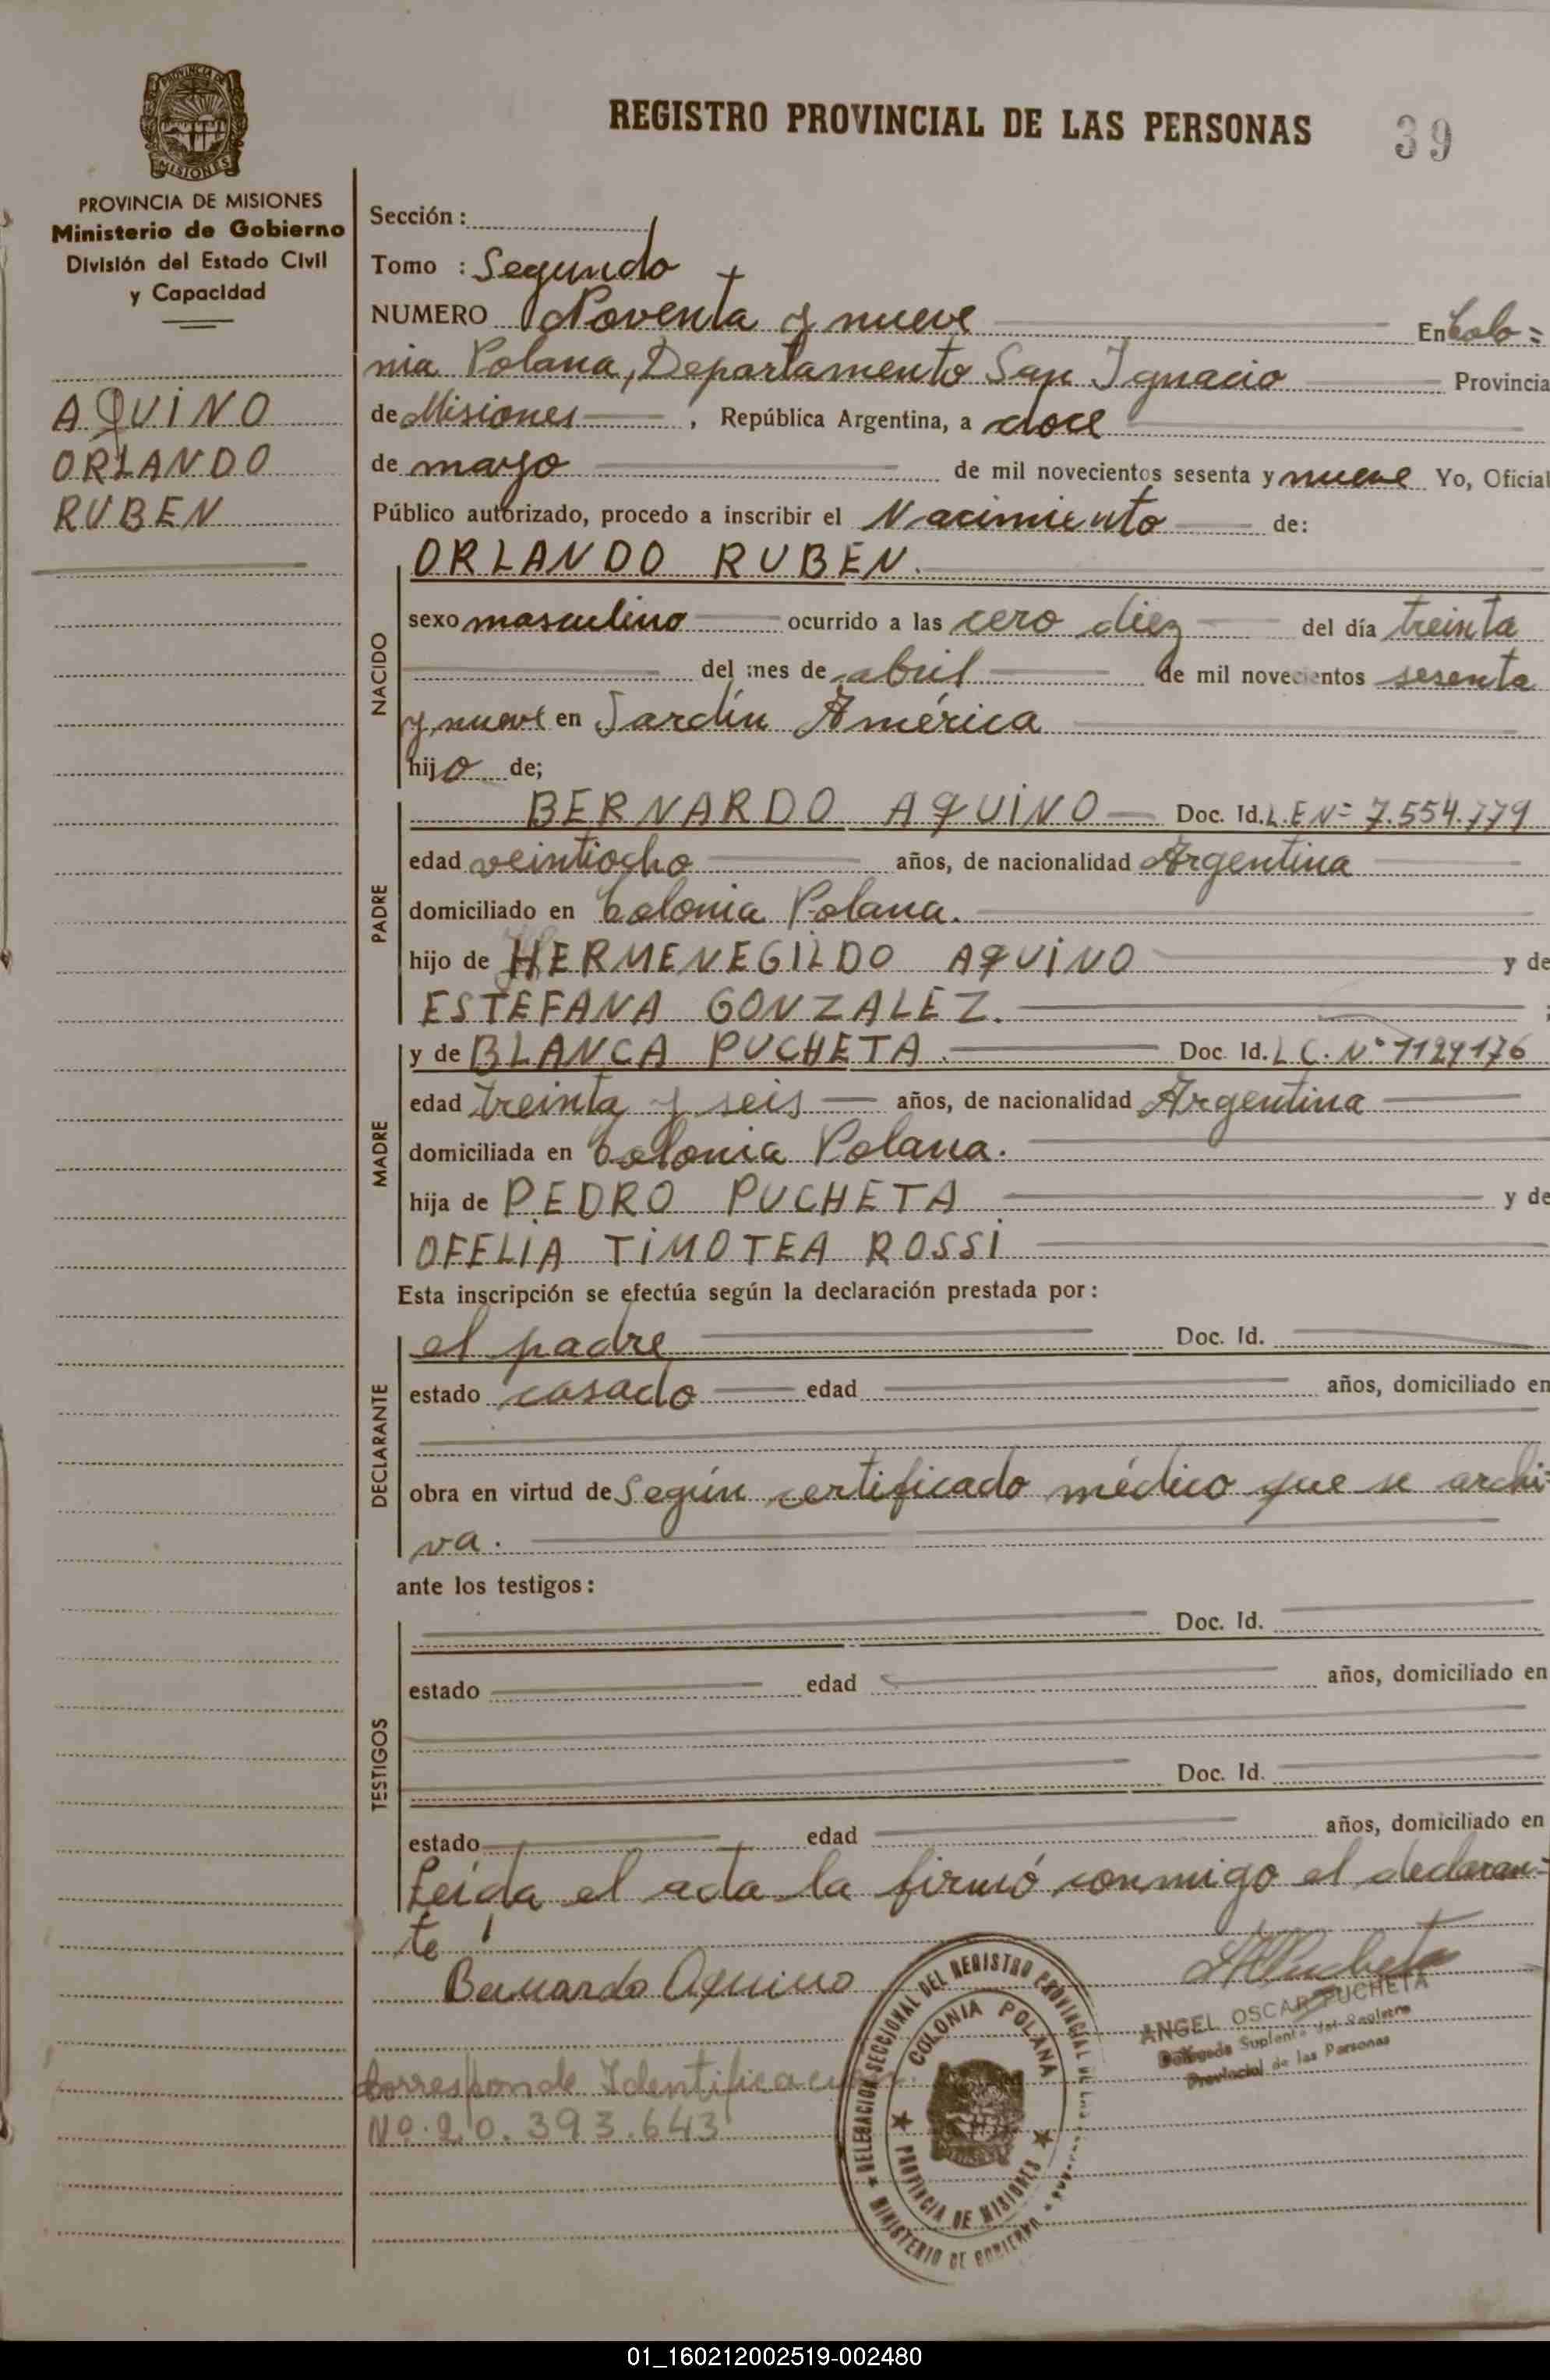 PROVINCIA DE
MISIONES
PROVINCIA DE MISIONES
Ministerio de Gobierno
División del Estado Civil
y Capacidad
AQUINO
ORLANDO
RUBEN
REGISTRO PROVINCIAL DE LAS PERSONAS 39
Sección :
Tomo : Segundo
NUMERO Noventa y nueve En Colo=
nia Polana, Departamento San Ignacio Provincia
de Misiones , República Argentina, a doce
de mayo de mil novecientos sesenta y nueve Yo, Oficial
Público autorizado, procedo a inscribir el Nacimiento de:
NACIDO
ORLANDO RUBEN.
sexo masculino ocurrido a las cero diez del día treinta
del mes de abril de mil novecientos sesenta
y nueve en Jardín América
hijo de;
PADRE
BERNARDO AQUINO Doc. Id. L.E Nº 7.554.779
edad veintiocho años, de nacionalidad Argentina
domiciliado en Colonia Polana.
hijo de HERMENEGILDO AQUINO y de
ESTEFANA GONZALEZ. ;
MADRE
y de BLANCA PUCHETA. Doc. Id. L C. Nº 1129176
edad treinta y seis años, de nacionalidad Argentina
domiciliada en Colonia Polana.
hija de PEDRO PUCHETA y de
OFELIA TIMOTEA ROSSI
Esta inscripción se efectúa según la declaración prestada por :
DECLARANTE
el padre Doc. Id.
estado casado edad años, domiciliado en
obra en virtud de Según certificado médico que se archi=
va.
ante los testigos :
TESTIGOS
Doc. Id.
estado edad años, domiciliado en
Doc. Id.
estado edad años, domiciliado en
Leída el acta la firmó conmigo el declaran=
te
Bernardo Aquino
ANGEL OSCAR PUCHETA
Delegado Suplente del Registro
Provincial de las Personas
DELEGACION SECCIONAL DEL REGISTRO PROVINCIAL DE LAS
COLONIA POLANA
PROVINCIA DE MISIONES
MINISTERIO DE GOBIERNO
Corresponde Identificación.
Nº. 20.393.643
01_160212002519-002480